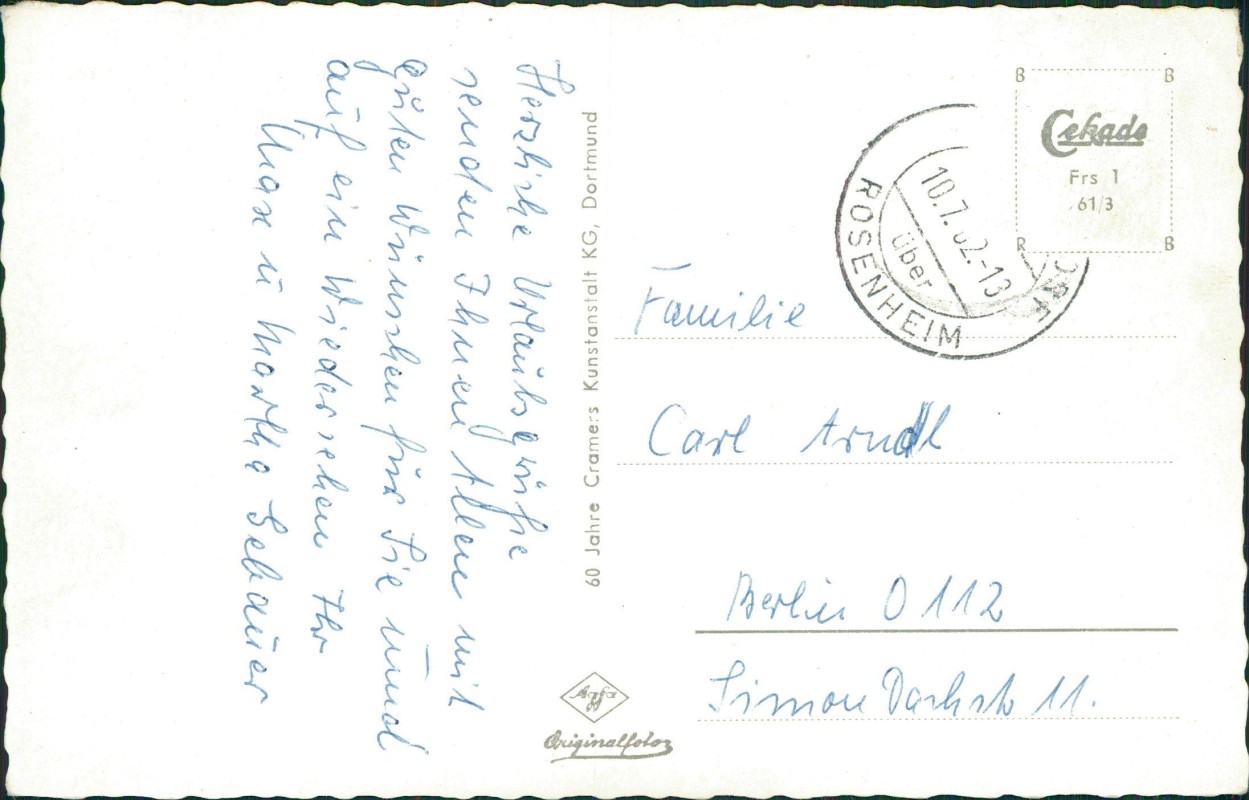 Herzliche Urlaubsgrüße
senden Ihnen Allen mit
guten Wünschen für Sie und
auf ein Wiedersehen Ihr
Max u Martha Gebauer
60 Jahre Cramers Kunstanstalt KG, Dortmund
Agfa
Originalfoto
B B
Cekade
Frs 1
61/3
R B
10.7. 62.-13
über
ROSENHEIM
Familie
Carl Arndt
Berlin O 112
Simon Dachstr 11.